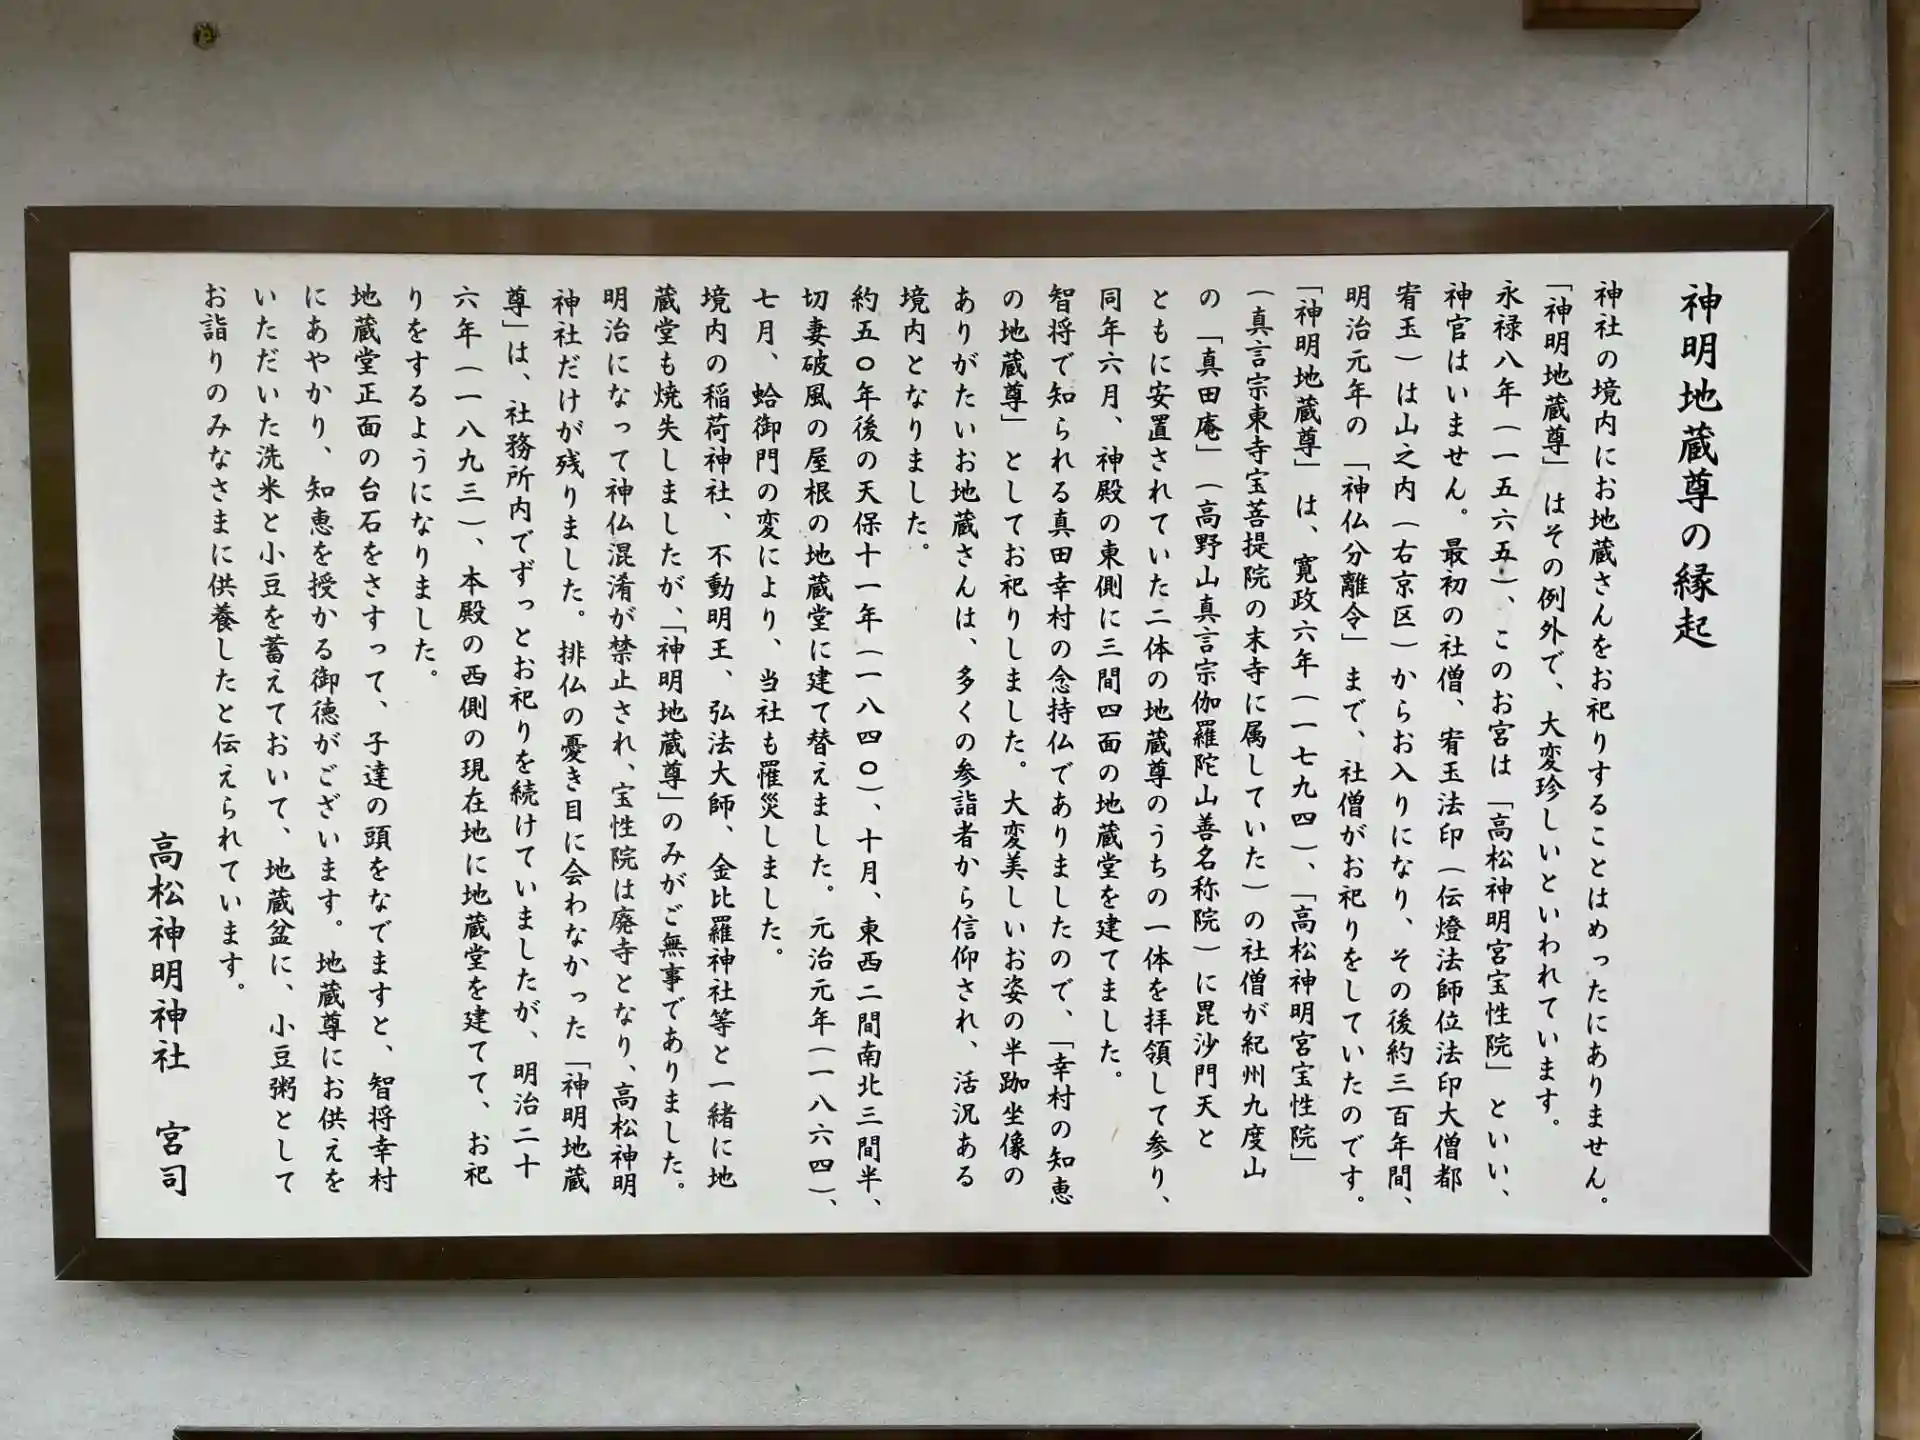 神明地蔵尊の縁起
神社の境内にお地蔵さんをお祀りすることはめったにありません。
「神明地蔵尊」はその例外で、大変珍しいといわれています。
永禄八年(一五六五)、このお宮は「高松神明宮宝性院」といい、
神官はいません。最初の社僧、宥玉法印(伝燈法師位法印大僧都
宥玉)は山之内(右京区)からお入りになり、その後約三百年間、
明治元年の「神仏分離令」まで、社僧がお祀りをしていたのです。
「神明地蔵尊」は、寛政六年(一七九四)、「高松神明宮宝性院」
(真言宗東寺宝菩提院の末寺に属していた)の社僧が紀州九度山
の「真田庵」(高野山真言宗伽羅陀山善名称院)に毘沙門天と
ともに安置されていた二体の地蔵尊のうちの一体を拝領して参り、
同年六月、神殿の東側に三間四面の地蔵堂を建てました。
智将で知られる真田幸村の念持仏でありましたので、「幸村の知恵
の地蔵尊」としてお祀りしました。大変美しいお姿の半跏坐像の
ありがたいお地蔵さんは、多くの参詣者から信仰され、活況ある
境内となりました。
約五〇年後の天保十一年(一八四〇)、十月、東西二間南北三間半、
切妻破風の屋根の地蔵堂に建て替えました。元治元年(一八六四)、
七月、蛤御門の変により、当社も罹災しました。
境内の稲荷神社、不動明王、弘法大師、金比羅神社等と一緒に地
蔵堂も焼失しましたが、「神明地蔵尊」のみがご無事でありました。
明治になって神仏混淆が禁止され、宝性院は廃寺となり、高松神明
神社だけが残りました。排仏の憂き目に会わなかった「神明地蔵
尊」は、社務所内でずっとお祀りを続けていましたが、明治二十
六年(一八九三)、本殿の西側の現在地に地蔵堂を建てて、お祀
りをするようになりました。
地蔵堂正面の台石をさすって、子達の頭をなでますと、智将幸村
にあやかり、知恵を授かる御徳がございます。地蔵尊にお供えを
いただいた洗米と小豆を蓄えておいて、地蔵盆に、小豆粥として
お詣りのみなさまに供養したと伝えられています。
高松神明神社　宮司